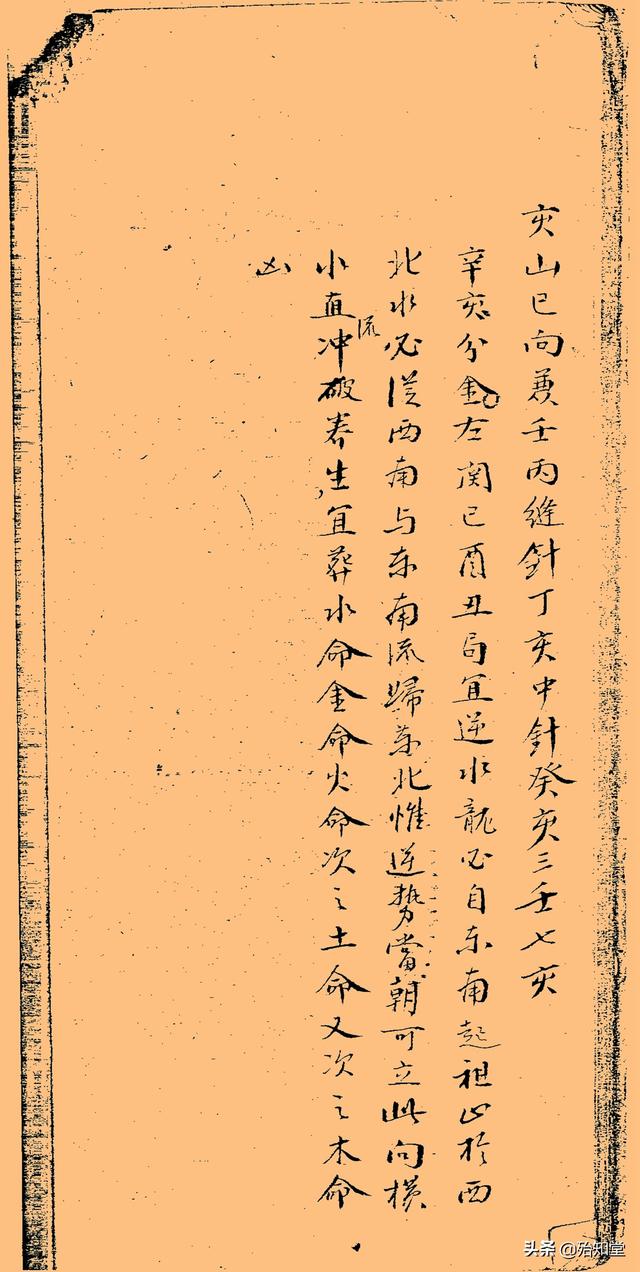 亥山巳向兼壬丙缝針丁亥中針癸亥三壬七亥
辛亥分金左関巳酉丑局宜逆水龍必自东南起祖止於西
北水必從西南与东南流歸东北惟逆势當朝可立此向横
小直冲流破养生宜葬水命金命火命次之土命又次之木命
凶
头条 @殆知堂